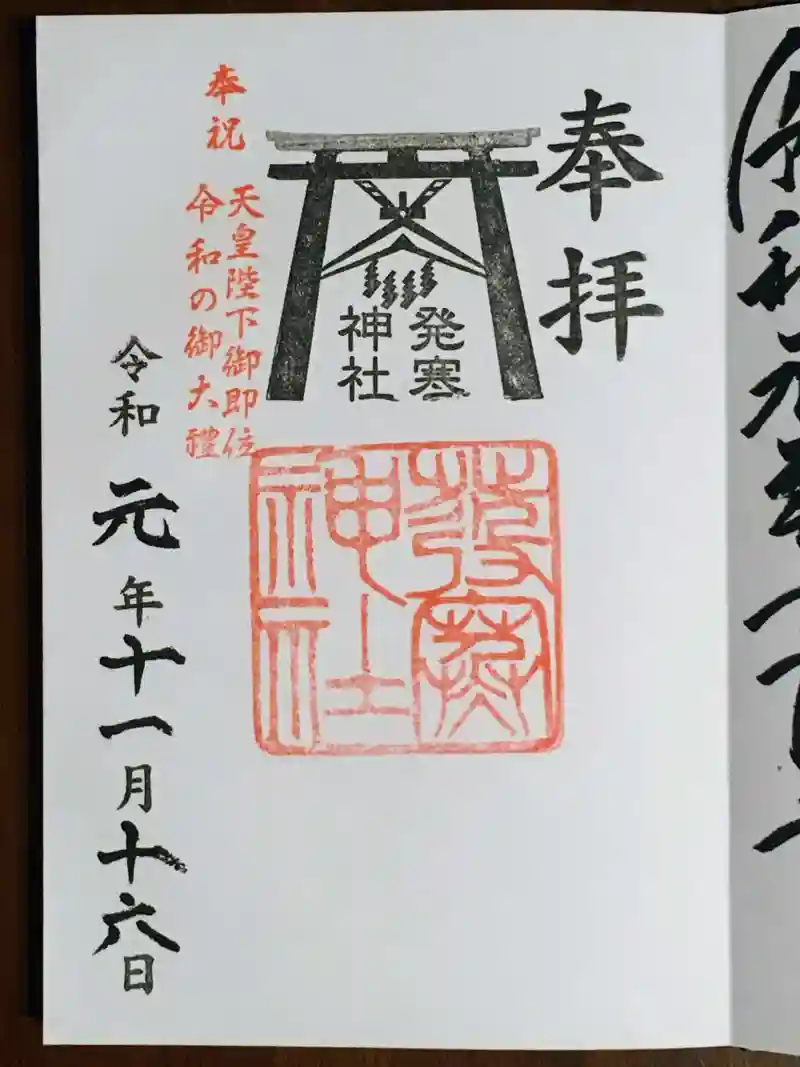 奉拝
発寒
神社
発寒
神社
奉祝
天皇陛下御即位
令和の御大禮
令和元年十一月十六日
令和元年